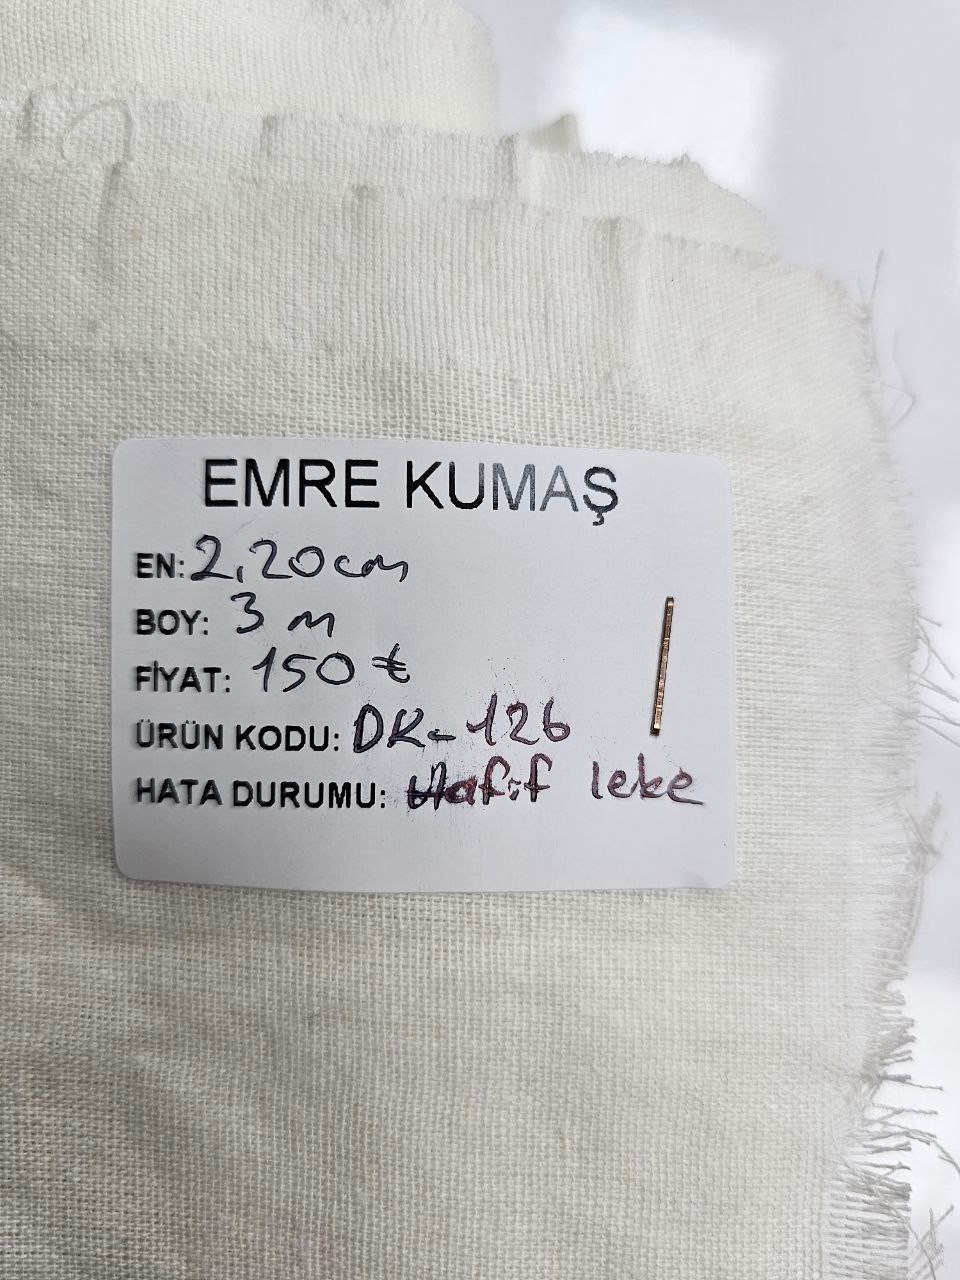 EMRE KUMAŞ
EN: 2,20cm
BOY: 3 m
FİYAT: 150 ₺
ÜRÜN KODU: DK-126
HATA DURUMU: Hafif leke